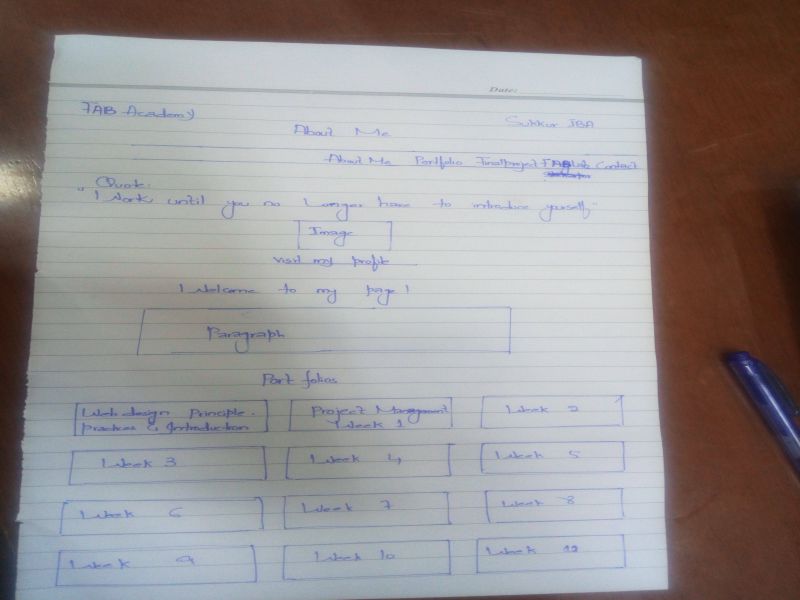 Date:
FAB Academy
Sukkur IBA
About Me
About Me Portfolio Finalproject FABLab Contact
Quote.
"I Work until you no Longer have to introduce yourself"
Image
visit my profile
Welcome to my page!
Paragraph
Port folios
Web design Principle. practices & Introduction
Project Management Week 1
Week 2
Week 3
Week 4
Week 5
Week 6
Week 7
Week 8
Week 9
Week 10
Week